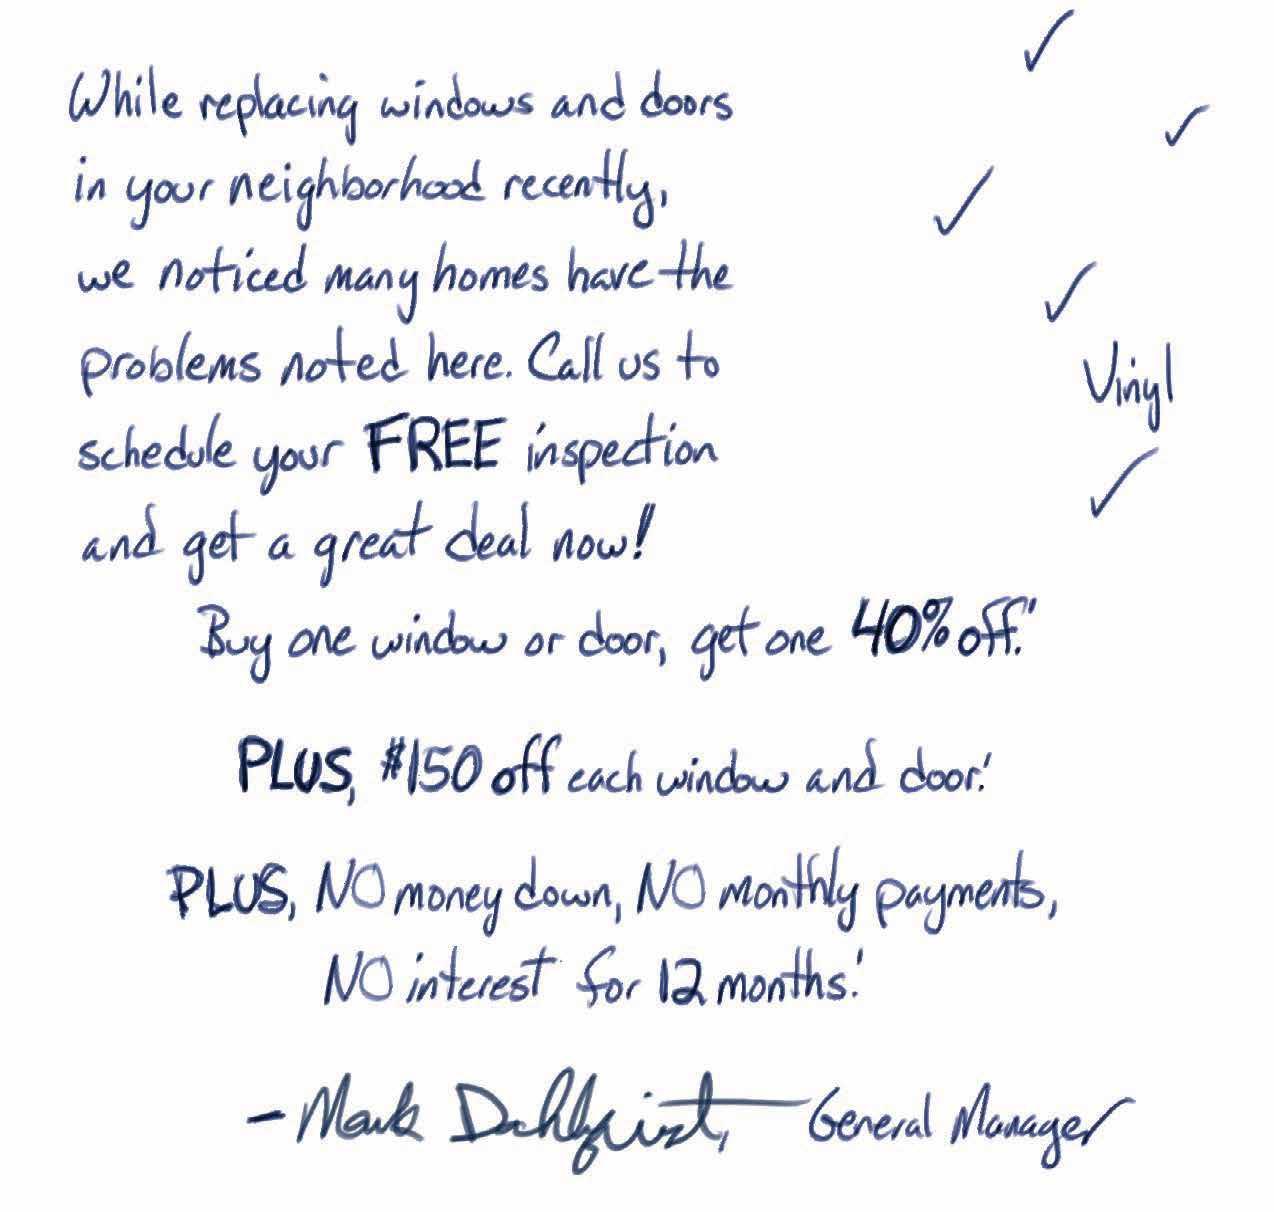 While replacing windows and doors
in your neighborhood recently,
we noticed many homes have the
problems noted here. Call us to
schedule your FREE inspection
and get a great deal now!
Vinyl
Buy one window or door, get one 40% off!
PLUS, $150 off each window and door!
PLUS, NO money down, NO monthly payments,
NO interest for 12 months!
– Mark Dahlquist, General Manager